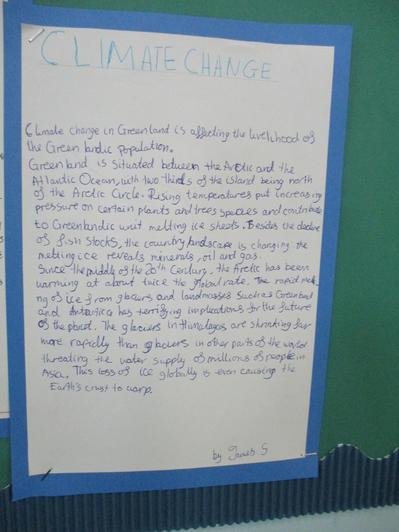 CLIMATE CHANGE
Climate change in Greenland is affecting the livelihood of
the Greenlandic Population.
Greenland is situated between the Arctic and the
Atlantic Ocean, with two thirds of the island being north
of the Arctic Circle. Rising temperatures put increasing
pressure on certain plants and trees species and contribute
to Greenlandic unit melting ice sheets. Besides the decline
of fish stocks, the country landscape is changing the
melting ice reveals minerals, oil and gas.
Since the middle of the 20th Century, the Arctic has been
warming at about twice the global rate. The rapid melt
ng of ice from glaciers and landmasses such as Greenland
and Antartica has terrifying implications for the future
of the planet. The glaciers in Himalayas are shrinking far
more rapidly than glaciers in other parts of the world
threating the water supply of millions of people in
Asia. This loss of ice globally is even causing the
Earth's crust to warp.
by S